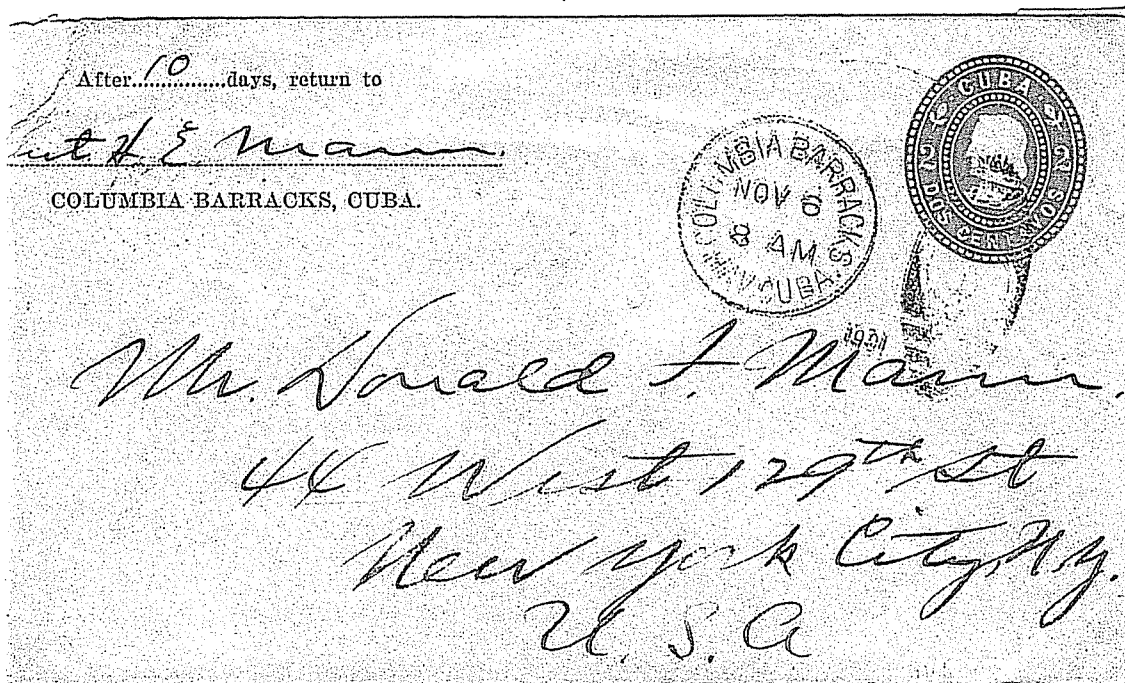 After 10 days, return to
H. E. Mann.
COLUMBIA BARRACKS, CUBA.
COLUMBIA BARRACKS.
NOV 6
AM
CUBA
CUBA
2 2
DOS CENTAVOS
1901
Mr. Donald F. Mann.
44 West 129th St
New York City, N.Y.
U. S. A